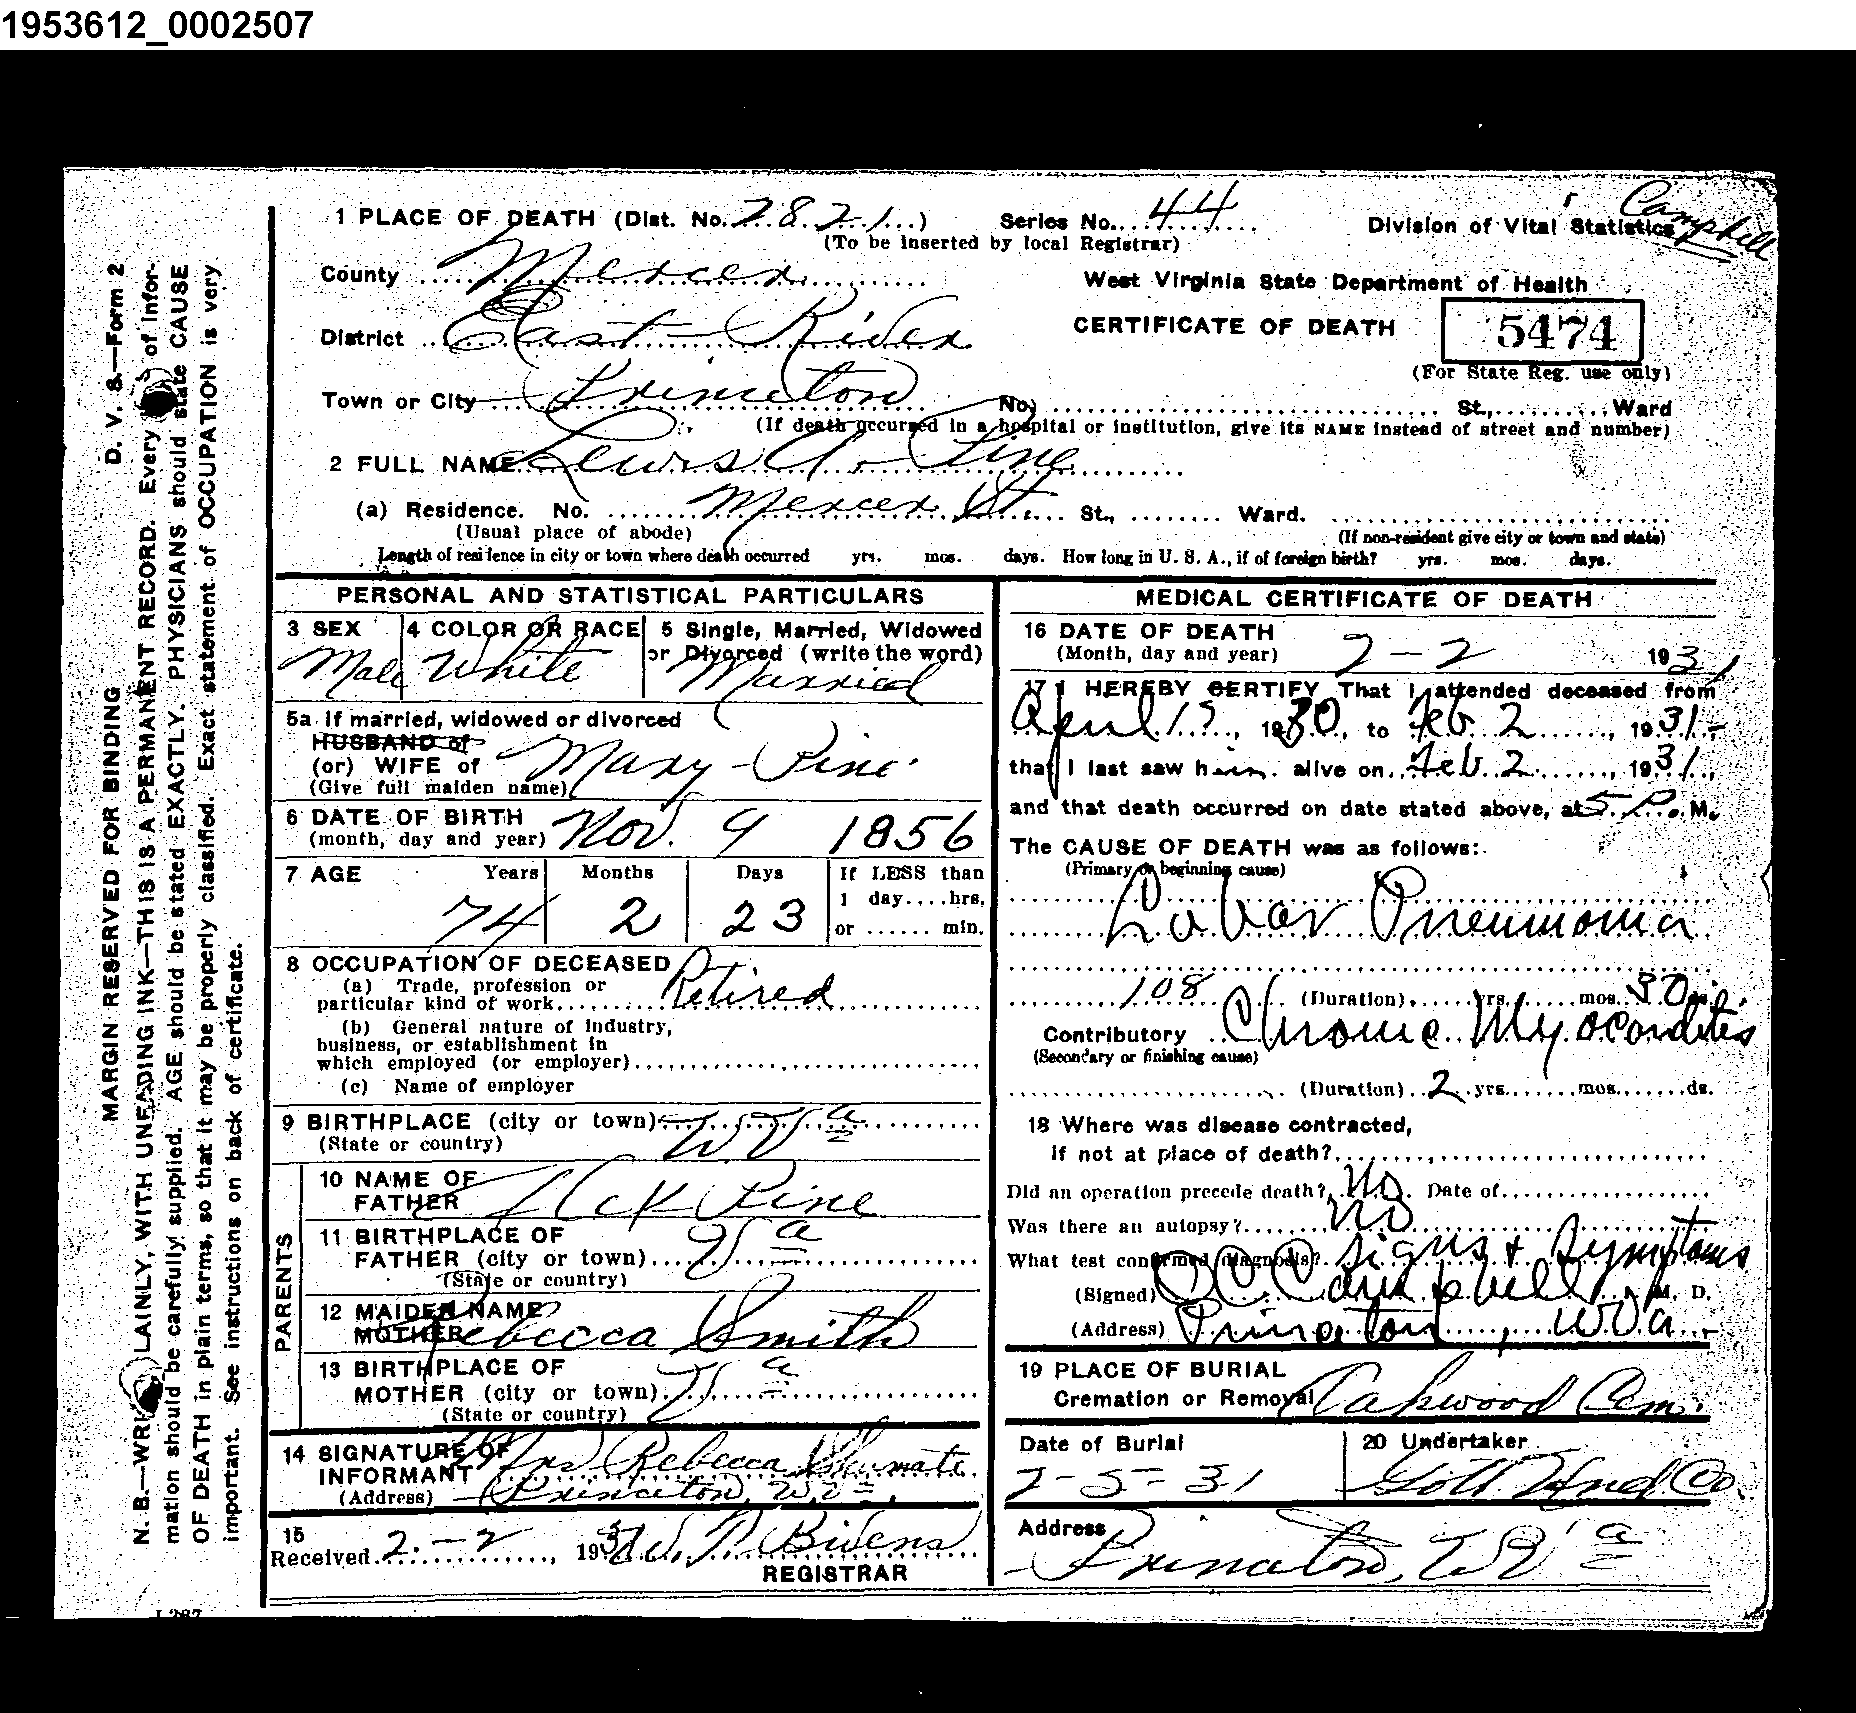 1953612_0002507
1 PLACE OF DEATH (Dist. No. 2821) Series No. 44 Division of Vital Statistics Campbell
(To be inserted by local Registrar)
County Mercer West Virginia State Department of Health
District East River CERTIFICATE OF DEATH 5474
(For State Reg. use only)
Town or City Princeton No. St., Ward
(If death occurred in a hospital or institution, give its NAME instead of street and number)
2 FULL NAME Lewis A. Pine
(a) Residence. No. Mercer St. St., Ward.
(Usual place of abode) (If non-resident give city or town and state)
Length of residence in city or town where death occurred yrs. mos. days. How long in U. S. A., if of foreign birth? yrs. mos. days.
PERSONAL AND STATISTICAL PARTICULARS
3 SEX 4 COLOR OR RACE 5 Single, Married, Widowed
or Divorced (write the word)
Male White Married
5a If married, widowed or divorced
HUSBAND of
(or) WIFE of Mary Pine
(Give full maiden name)
6 DATE OF BIRTH
(month, day and year) Nov. 9 1856
7 AGE Years Months Days If LESS than
1 day....hrs.
74 2 23 or ...... min.
8 OCCUPATION OF DECEASED
(a) Trade, profession or
particular kind of work Retired
(b) General nature of Industry,
business, or establishment in
which employed (or employer)
(c) Name of employer
9 BIRTHPLACE (city or town) W Va
(State or country)
PARENTS
10 NAME OF
FATHER Pine
11 BIRTHPLACE OF
FATHER (city or town) Va
(State or country)
12 MAIDEN NAME
MOTHER Rebecca Smith
13 BIRTHPLACE OF
MOTHER (city or town) Va
(State or country)
14 SIGNATURE OF
INFORMANT Mrs Rebecca Shumate
(Address) Princeton, W.Va.
15
Received 2-2, 1931 W. P. Bivens
REGISTRAR
MEDICAL CERTIFICATE OF DEATH
16 DATE OF DEATH
(Month, day and year) 2-2 1931
17 I HEREBY CERTIFY That I attended deceased from
April 1?, 1930, to Feb 2, 1931
that I last saw him alive on Feb 2, 1931,
and that death occurred on date stated above, at 5 P. M.
The CAUSE OF DEATH was as follows:
(Primary or beginning cause)
Lobar Pneumonia
108 (Duration) yrs. mos. ds.
Contributory Chronic Myocarditis
(Secondary or finishing cause)
(Duration) 2 yrs. mos. ds.
18 Where was disease contracted,
if not at place of death?
Did an operation precede death? No. Date of
Was there an autopsy? No
What test confirmed diagnosis? Signs + Symptoms
(Signed) O C Campbell M. D.
(Address) Princeton, W Va
19 PLACE OF BURIAL
Cremation or Removal Oakwood Cem.
Date of Burial 20 Undertaker
2-5-31 Gott Co.
Address
Princeton, W Va
D. V. S.—Form 2
MARGIN RESERVED FOR BINDING
N. B.—WRITE PLAINLY, WITH UNFADING INK—THIS IS A PERMANENT RECORD. Every of infor-
mation should be carefully supplied. AGE should be stated EXACTLY. PHYSICIANS should state CAUSE
OF DEATH in plain terms, so that it may be properly classified. Exact statement of OCCUPATION is very
important. See instructions on back of certificate.